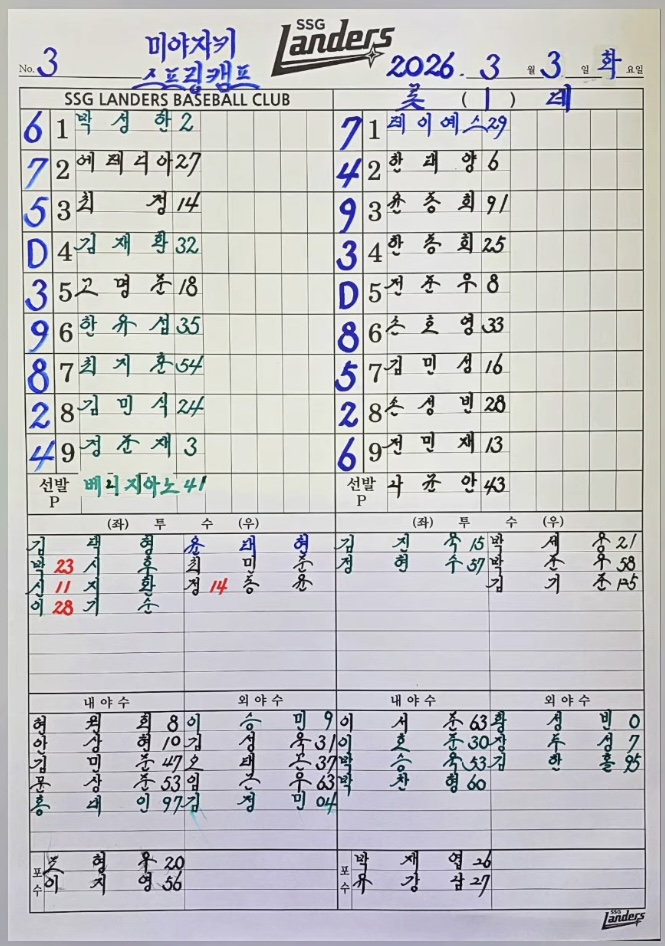 SSG
Landers
미야자키
스프링캠프
No. 3
2026. 3 월 3 일 화 요일
SSG LANDERS BASEBALL CLUB
롯 ( 1 ) 데
6 1 박성한 2
7 2 에레디아 27
5 3 최정 14
D 4 김재환 32
3 5 고명준 18
9 6 한유섬 35
8 7 최지훈 54
2 8 김민식 24
4 9 정준재 3
선발 P 베니지아노 41
7 1 레이예스 29
4 2 한태양 6
9 3 윤동희 91
3 4 한동희 25
D 5 전준우 8
8 6 손호영 33
5 7 김민성 16
2 8 손성빈 28
6 9 전민재 13
선발 P 나균안 43
(좌) 투 수 (우)
김택형 윤태현
박 23 시후 최민준
신 11 지환 정 14 동윤
이 28 기순
(좌) 투 수 (우)
김진욱 15 박세웅 21
정현수 57 박준우 58
김기준
내야수 외야수
현원회 8 이승민 9
안상현 10 김성욱 31
김민준 47 오태곤 37
문상준 53 임근우 63
홍대인 97 김정민 04
내야수 외야수
이서준 63 황성빈 0
이호준 30 장두성 7
박승욱 53 김한홀 95
박찬형 60
포수
조형우 20
이지영 56
포수
박재엽 26
유강남 27
SSG
Landers